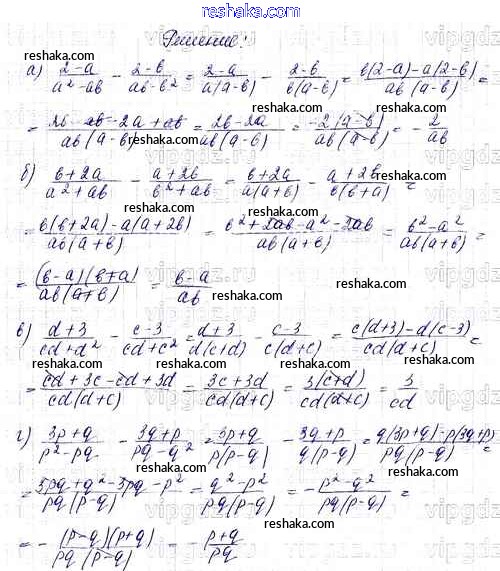 www.reshaka.com
Решение:
а) \frac{2-a}{a^2-ab} - \frac{2-b}{ab-b^2} = \frac{2-a}{a(a-b)} - \frac{2-b}{b(a-b)} = \frac{b(2-a)-a(2-b)}{ab(a-b)} =
= \frac{2b-ab-2a+ab}{ab(a-b)} = \frac{2b-2a}{ab(a-b)} = \frac{-2(a-b)}{ab(a-b)} = -\frac{2}{ab}
б) \frac{b+2a}{a^2+ab} - \frac{a+2b}{b^2+ab} = \frac{b+2a}{a(a+b)} - \frac{a+2b}{b(b+a)} =
= \frac{b(b+2a)-a(a+2b)}{ab(a+b)} = \frac{b^2+2ab-a^2-2ab}{ab(a+b)} = \frac{b^2-a^2}{ab(a+b)} =
= \frac{(b-a)(b+a)}{ab(a+b)} = \frac{b-a}{ab}
в) \frac{d+3}{cd+d^2} - \frac{c-3}{cd+c^2} = \frac{d+3}{d(c+d)} - \frac{c-3}{c(d+c)} = \frac{c(d+3)-d(c-3)}{cd(d+c)} =
= \frac{cd+3c-cd+3d}{cd(d+c)} = \frac{3c+3d}{cd(d+c)} = \frac{3(c+d)}{cd(d+c)} = \frac{3}{cd}
г) \frac{3p+q}{p^2-pq} - \frac{3q+p}{pq-q^2} = \frac{3p+q}{p(p-q)} - \frac{3q+p}{q(p-q)} = \frac{q(3p+q)-p(3q+p)}{pq(p-q)} =
= \frac{3pq+q^2-3pq-p^2}{pq(p-q)} = \frac{q^2-p^2}{pq(p-q)} = -\frac{p^2-q^2}{pq(p-q)} =
= -\frac{(p-q)(p+q)}{pq(p-q)} = -\frac{p+q}{pq}
reshaka.com
reshaka.com
reshaka.com
reshaka.com
reshaka.com
reshaka.com
reshaka.com
reshaka.com
reshaka.com
reshaka.com
reshaka.com
reshaka.com
reshaka.com
reshaka.com